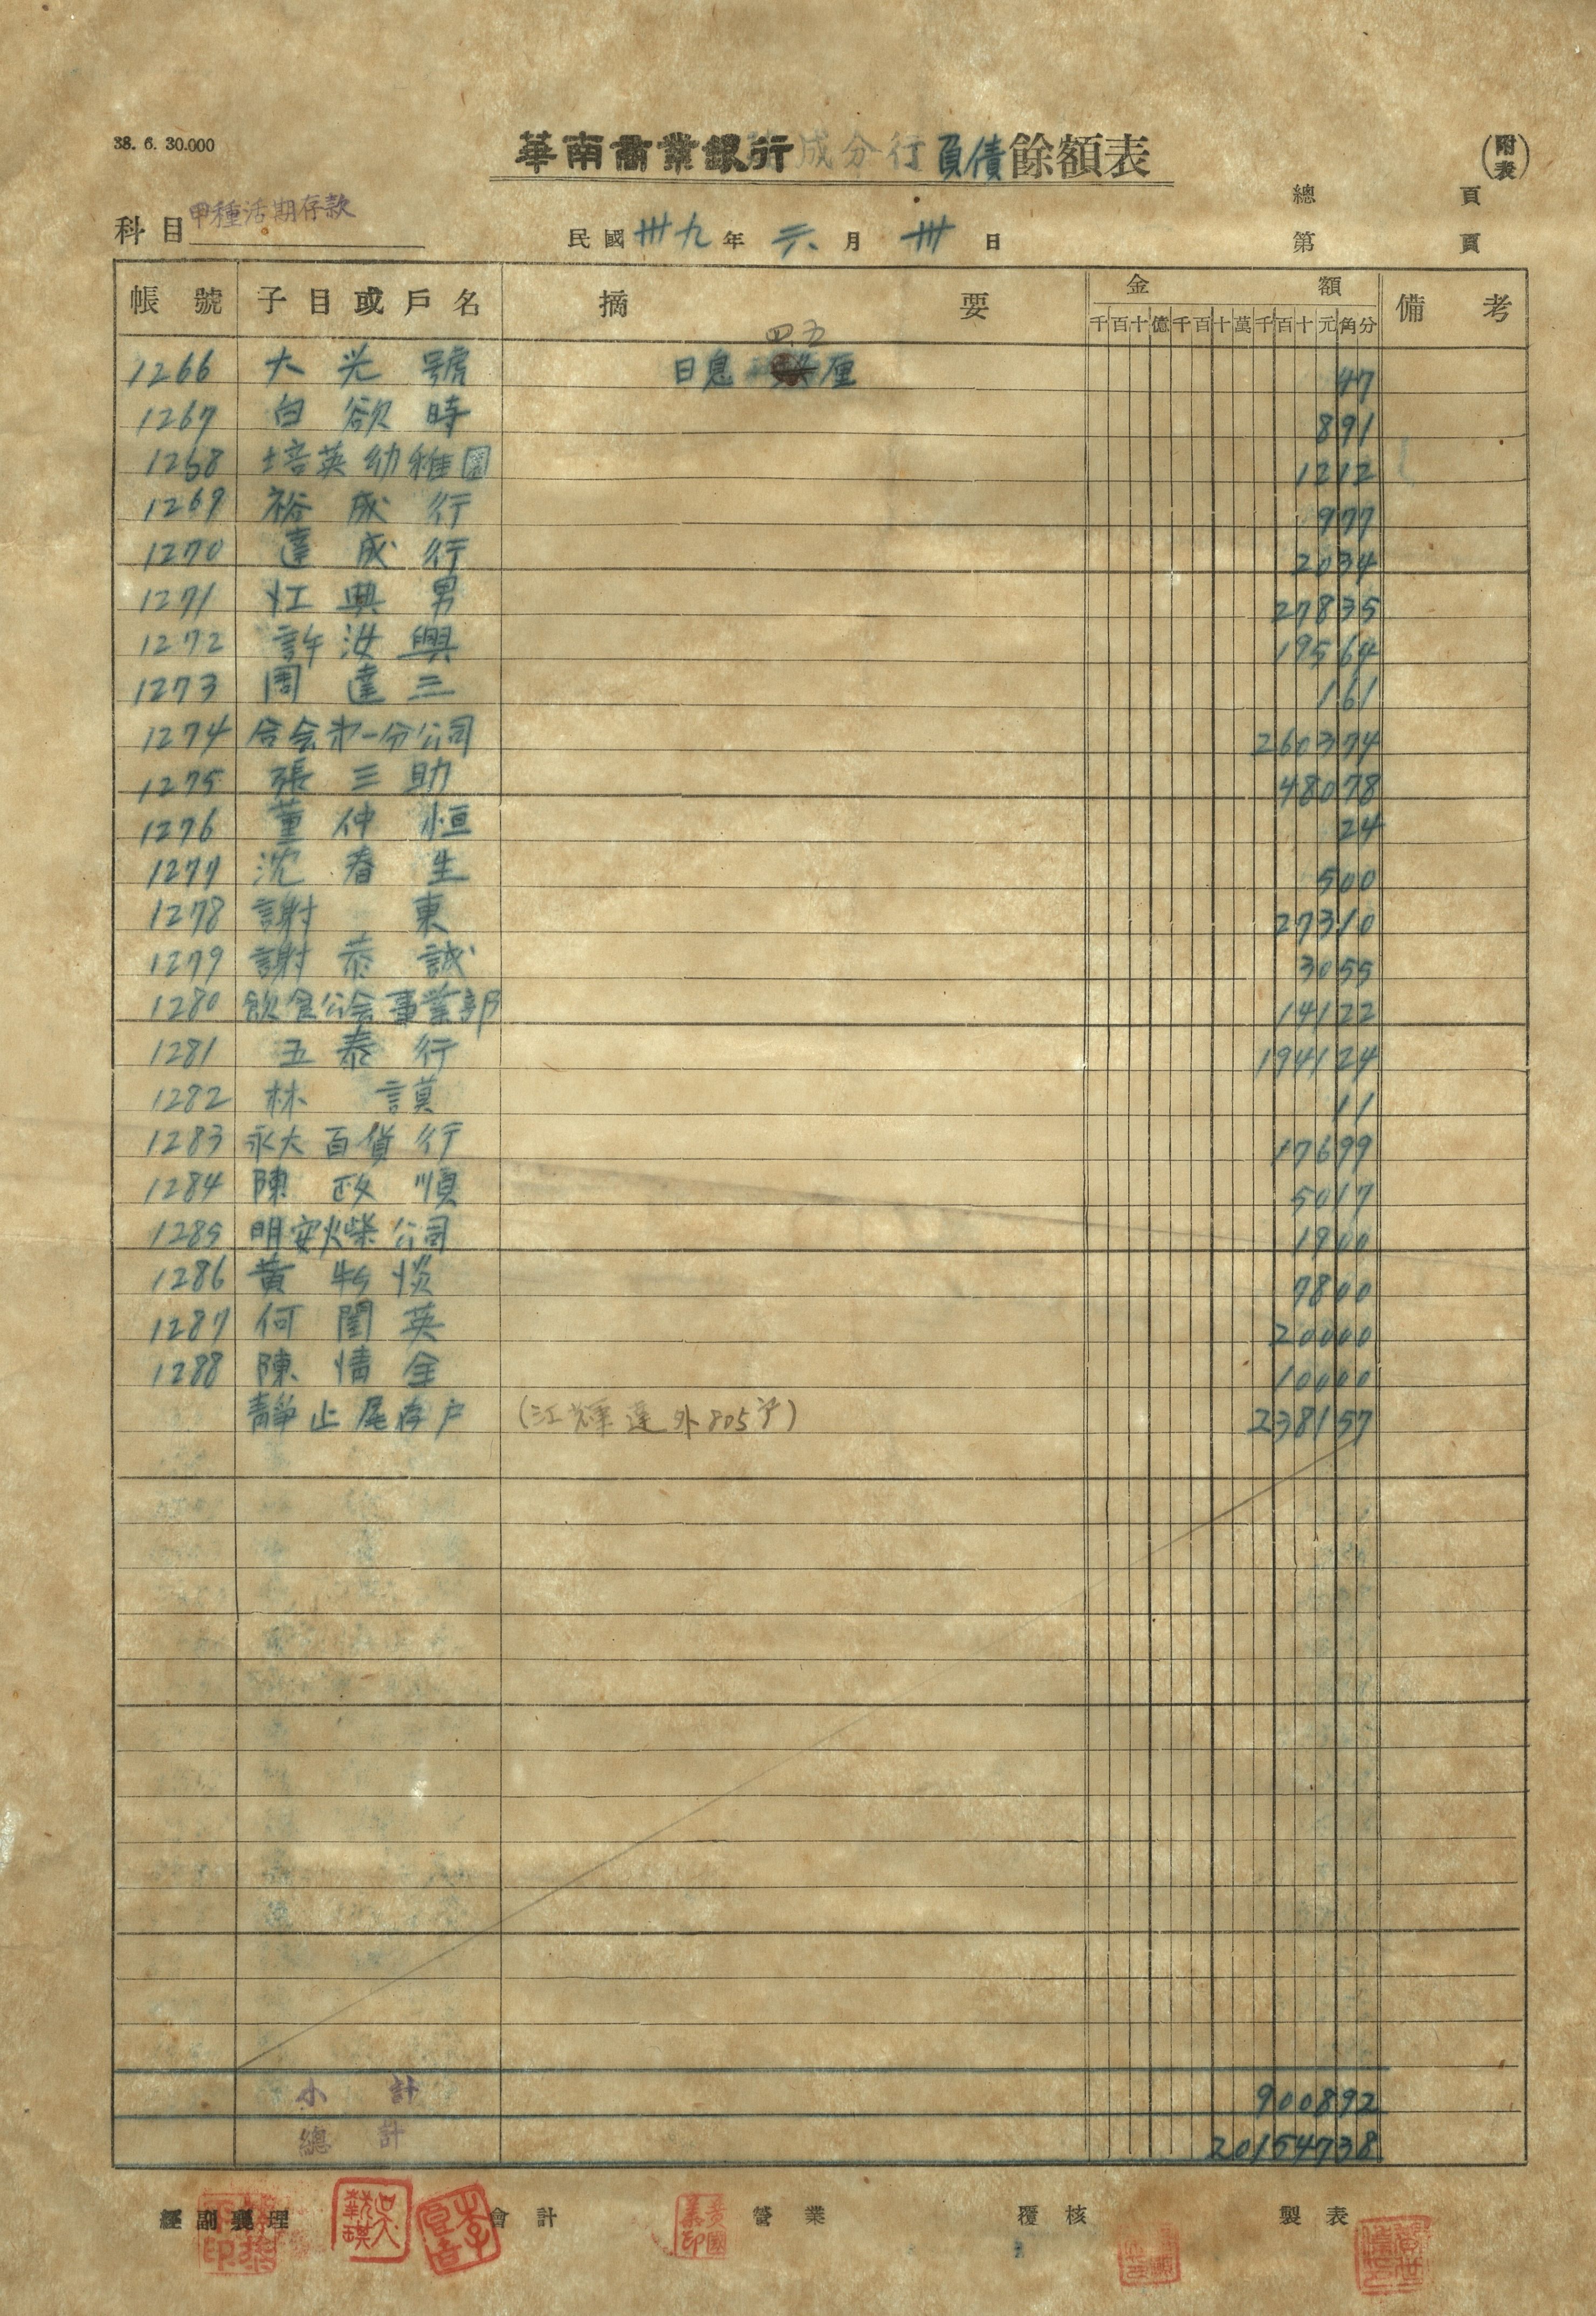 38. 6. 30.000
華南商業銀行 成分行 負債餘額表
(附表)
總 頁
科目 甲種活期存款
民國 卅九 年 六 月 卅 日
第 頁
帳號 子目或戶名 摘要 金額 備考
千百十億千百十萬千百十元角分
四.五
1266 大光號 日息 厘 47
1267 白欲時 891
1268 培英幼稚園 1212
1269 裕成行 977
1270 達成行 2034
1271 江興男 27835
1272 許汝興 19564
1273 周達三 161
1274 合会第一分公司 260374
1275 張三助 48078
1276 董仲恒 24
1277 沈春生 500
1278 謝東 27310
1279 謝恭誠 3055
1280 飲食公会事業部 14122
1281 五泰行 194124
1282 林謨 11
1283 永大百貨行 17699
1284 陳政順 5017
1285 明安火柴公司 1900
1286 黃 7800
1287 何閨英 20000
1288 陳情全 10000
靜止尾存戶 (江輝達外805戶) 238157
小計 900892
總計 20154738
經副襄理 會計 營業 覆核 製表